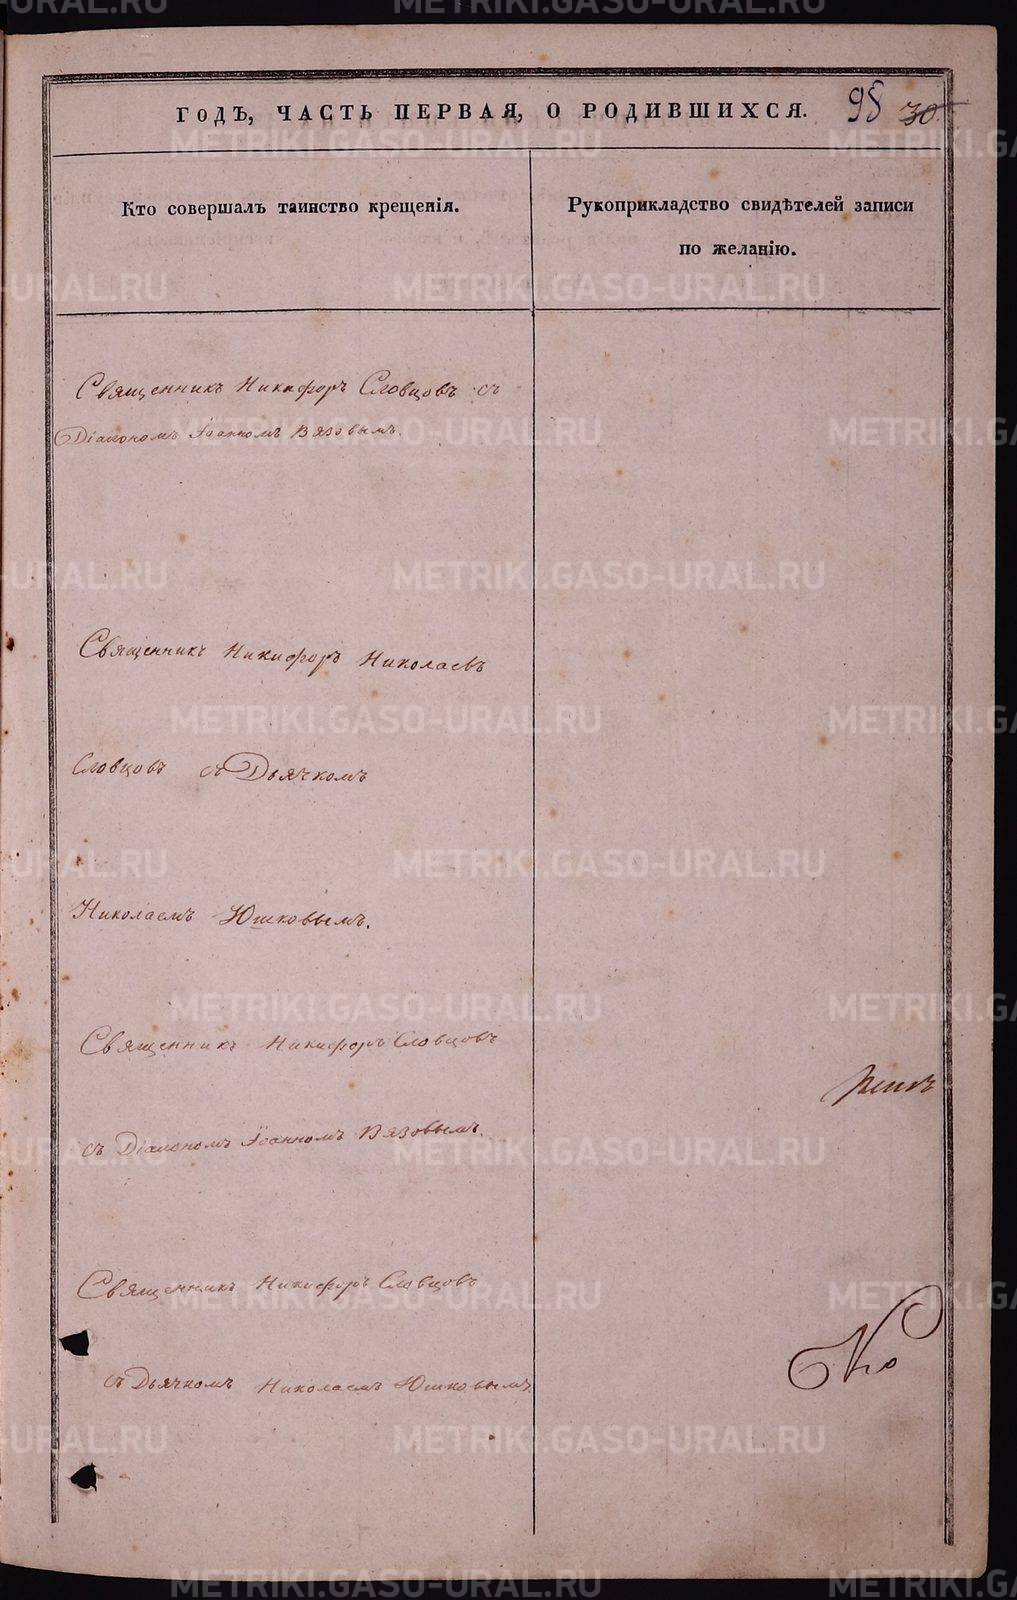 ГОДЪ, ЧАСТЬ ПЕРВАЯ, О РОДИВШИХСЯ.
98 30
Кто совершалъ таинство крещенія.
Рукоприкладство свидѣтелей записи
по желанію.
Священникъ Никифоръ Словцовъ съ
Діакономъ Іоанномъ Вязовымъ.
Священникъ Никифоръ Николаевъ
Словцовъ съ Дьячкомъ
Николаемъ Юшковымъ.
Священникъ Никифоръ Словцовъ
съ Діакономъ Іоанномъ Вязовымъ.
Священникъ Никифоръ Словцовъ
съ Дьячкомъ Николаемъ Юшковымъ
METRIKI.GASO-URAL.RU